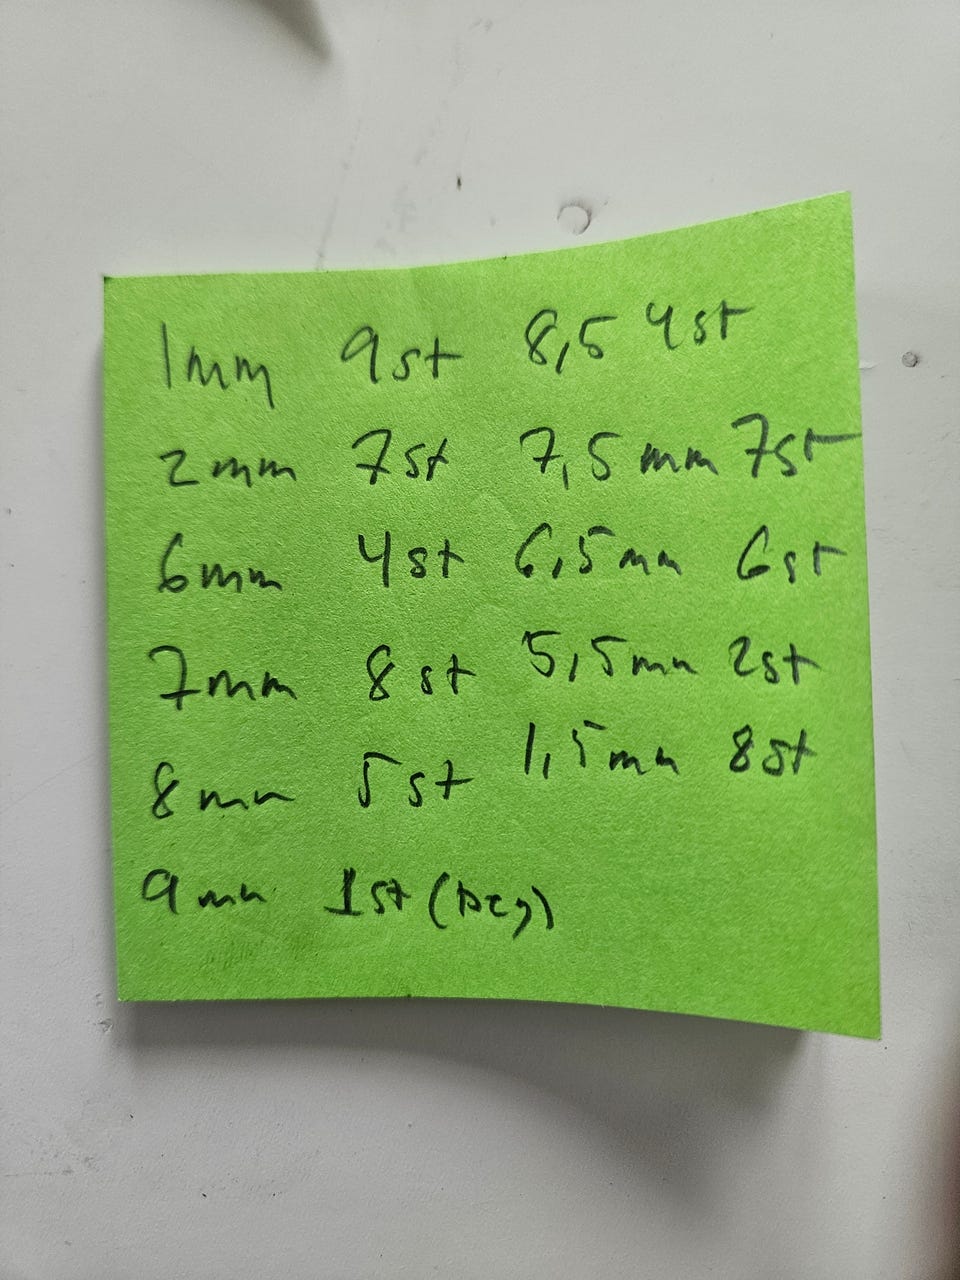 1mm 9st 8,5 4st
2mm 7st 7,5mm 7st
6mm 4st 6,5mm 6st
7mm 8st 5,5mm 2st
8mm 5st 1,5mm 8st
9mm 1st